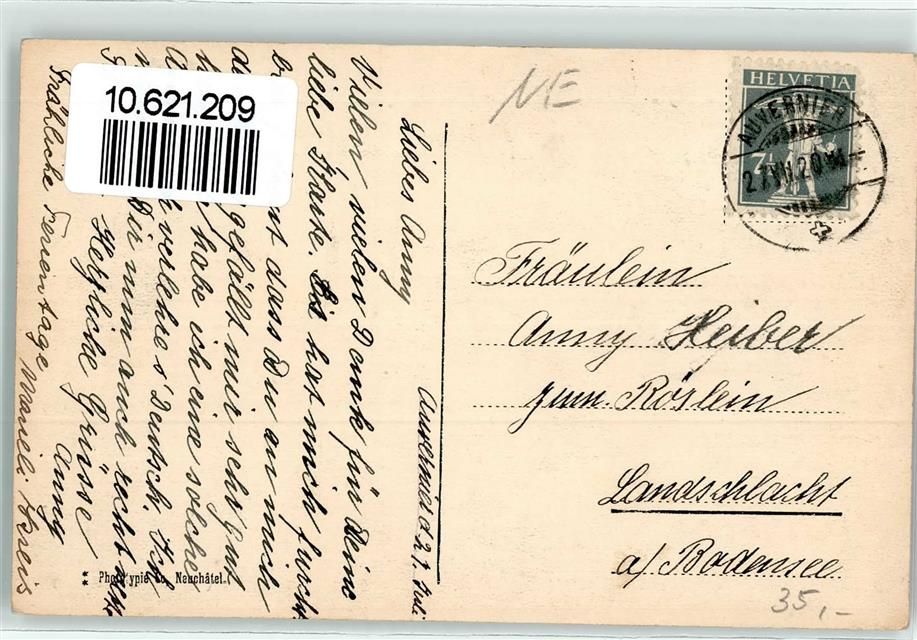 10.621.209
NE
HELVETIA
7½
AUVERNIER
27.VII.20
Auvernier d. 27. Juli.
Liebes Anny
Vielen vielen Dank für Deine
liebe Karte. Es hat mich furcht
dass Du an mich
gefällt mir sehr gut
habe ich eine solche
verlehre s'Deutsch. Ich
Dir nun auch recht
Herzliche Grüsse
Anny
Fröhliche Ferientage Marieli Kreis
Fräulein
Anny Heiber
zum Röslein
Landschlacht
a/ Bodensee
35,-
Phototypie Co. Neuchâtel